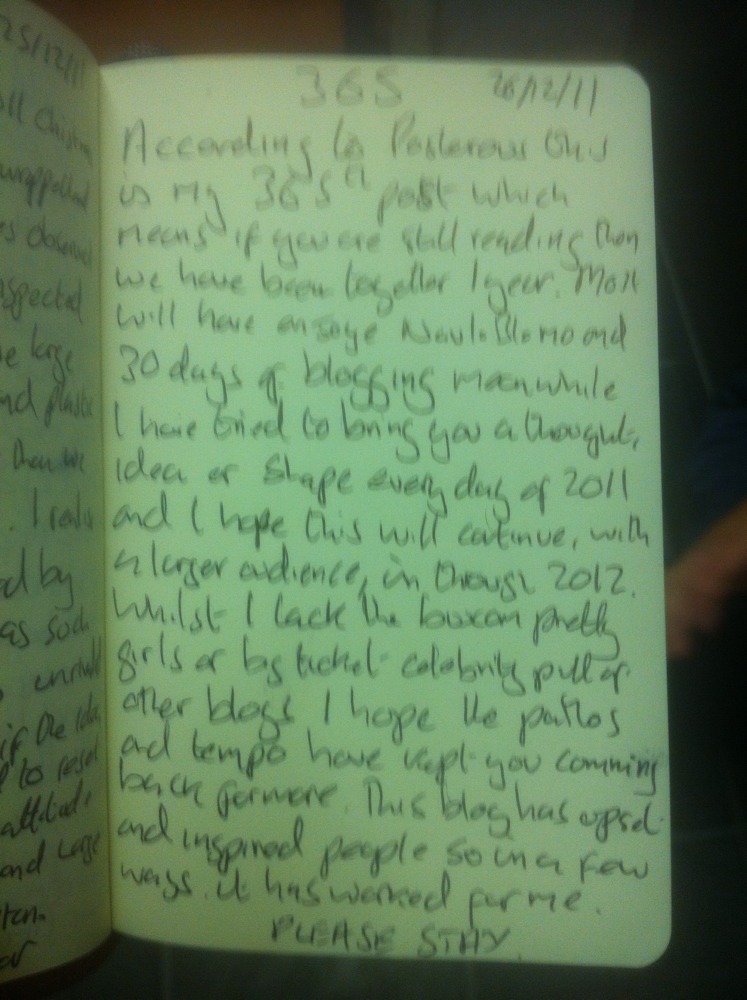 25/12/11
all Christmas
wrapped
nspected
e large
nd plastic
then we
. I
ed by
as such
if the
to reset
attitude
and large
365 26/12/11
According to Posterous this
is my 365th post which
means if you are still reading then
we have been together 1 year. Most
will have NavloBlomo and
30 days of blogging meanwhile
I have tried to bring you a thought,
idea or shape every day of 2011
and I hope this will catinue, with
a larger audience, in through 2012.
Whilst I lack the buxom pretty
girls or big ticket celebrity pull of
other blogs I hope the pathos
and tempo have kept you comming
back for more. This blog has upset
and inspired people so in a few
ways it has worked for me.
PLEASE STAY.